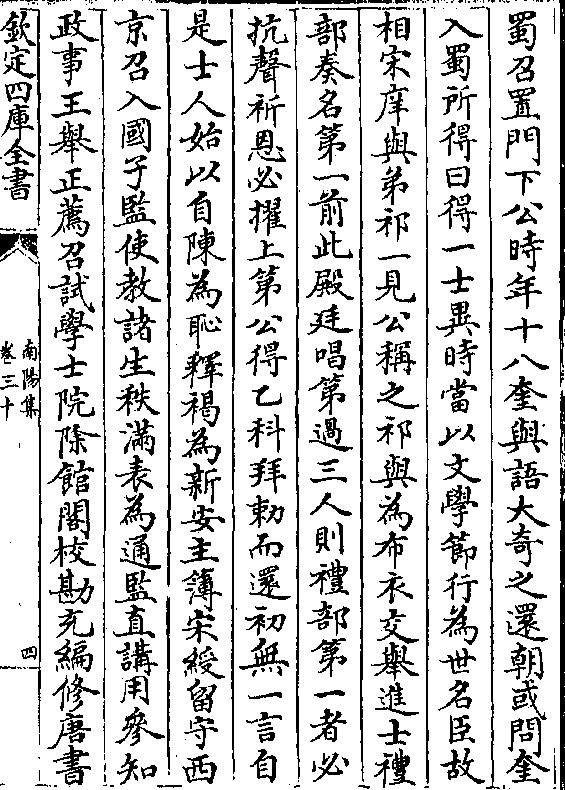 蜀召置門下公時年十八奎與語大奇之還朝或問奎
入蜀所得曰得一士異時當以文學節行為世名臣故
相宋庠與弟祁一見公稱之祁與為布衣交舉進士禮
部奏名第一前此殿廷唱第過三人則禮部第一者必
抗聲祈恩必擢上第公得乙科拜勅而還初無一言自
是士人始以自陳為恥釋褐為新安主簿宋綬留守西
京召入國子監使教諸生秩滿表為通監直講用參知
政事王舉正薦召試學士院除館閣校勘充編修唐書
欽定四庫全書
南陽集
卷三十
四